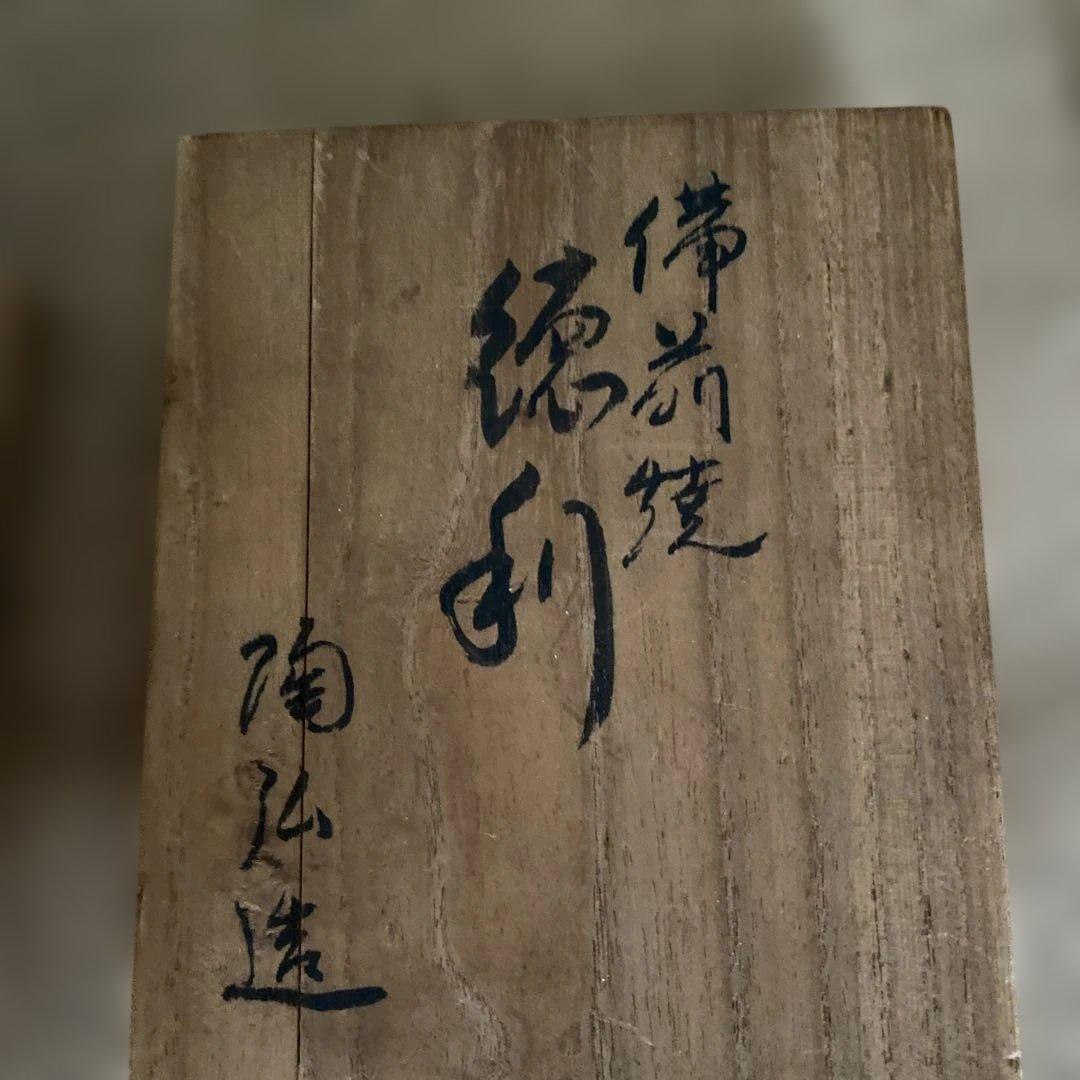 備前焼
徳利
陶弘造